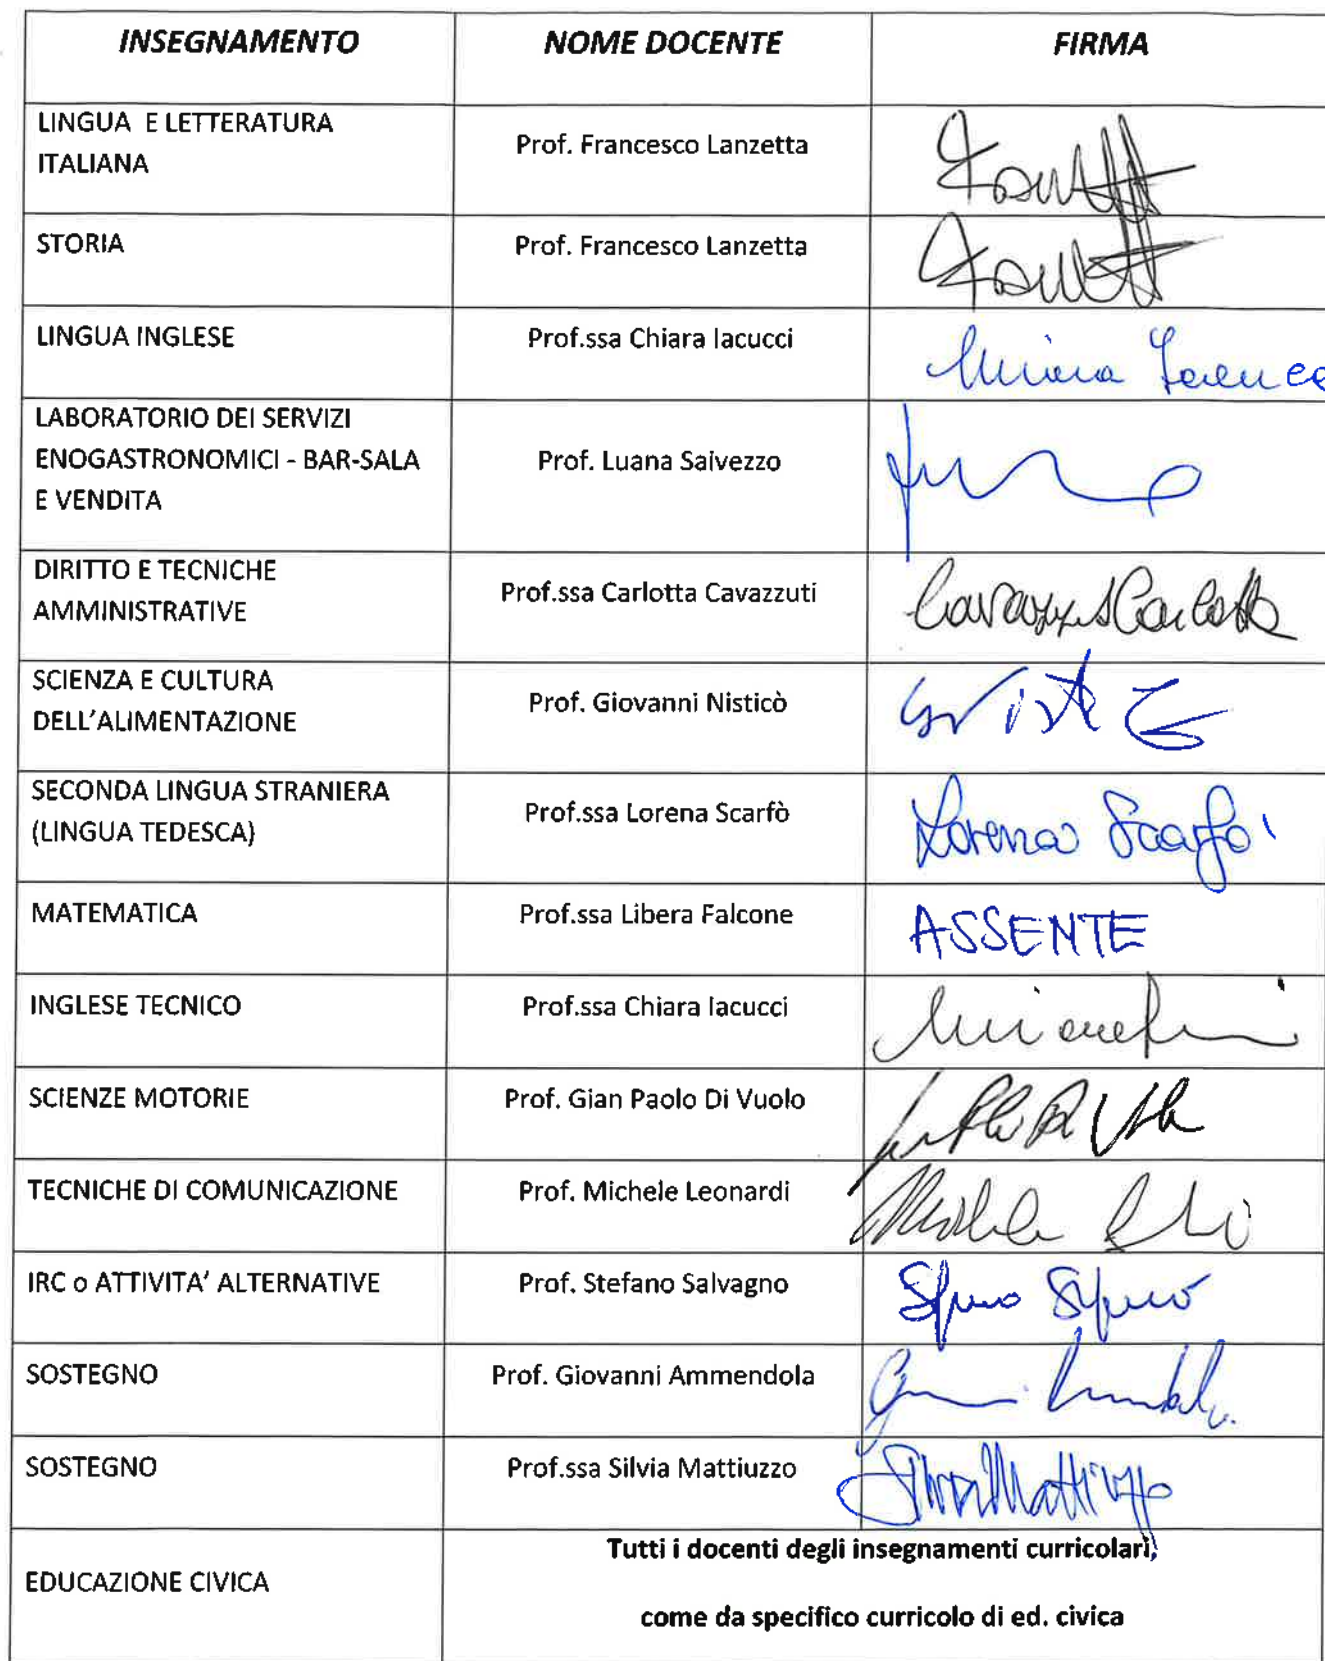 INSEGNAMENTO NOME DOCENTE FIRMA
LINGUA E LETTERATURA
ITALIANA
Prof. Francesco Lanzetta
STORIA Prof. Francesco Lanzetta
LINGUA INGLESE Prof.ssa Chiara Iacucci
LABORATORIO DEI SERVIZI
ENOGASTRONOMICI - BAR-SALA
E VENDITA
Prof. Luana Saivezzo
DIRITTO E TECNICHE
AMMINISTRATIVE
Prof.ssa Carlotta Cavazzuti
SCIENZA E CULTURA
DELL'ALIMENTAZIONE
Prof. Giovanni Nisticò
SECONDA LINGUA STRANIERA
(LINGUA TEDESCA)
Prof.ssa Lorena Scarfò
Lorena Scarfò
MATEMATICA Prof.ssa Libera Falcone ASSENTE
INGLESE TECNICO Prof.ssa Chiara Iacucci
SCIENZE MOTORIE Prof. Gian Paolo Di Vuolo
TECNICHE DI COMUNICAZIONE Prof. Michele Leonardi
IRC o ATTIVITA' ALTERNATIVE Prof. Stefano Salvagno
SOSTEGNO Prof. Giovanni Ammendola
SOSTEGNO Prof.ssa Silvia Mattiuzzo
EDUCAZIONE CIVICA
Tutti i docenti degli insegnamenti curricolari,
come da specifico curricolo di ed. civica